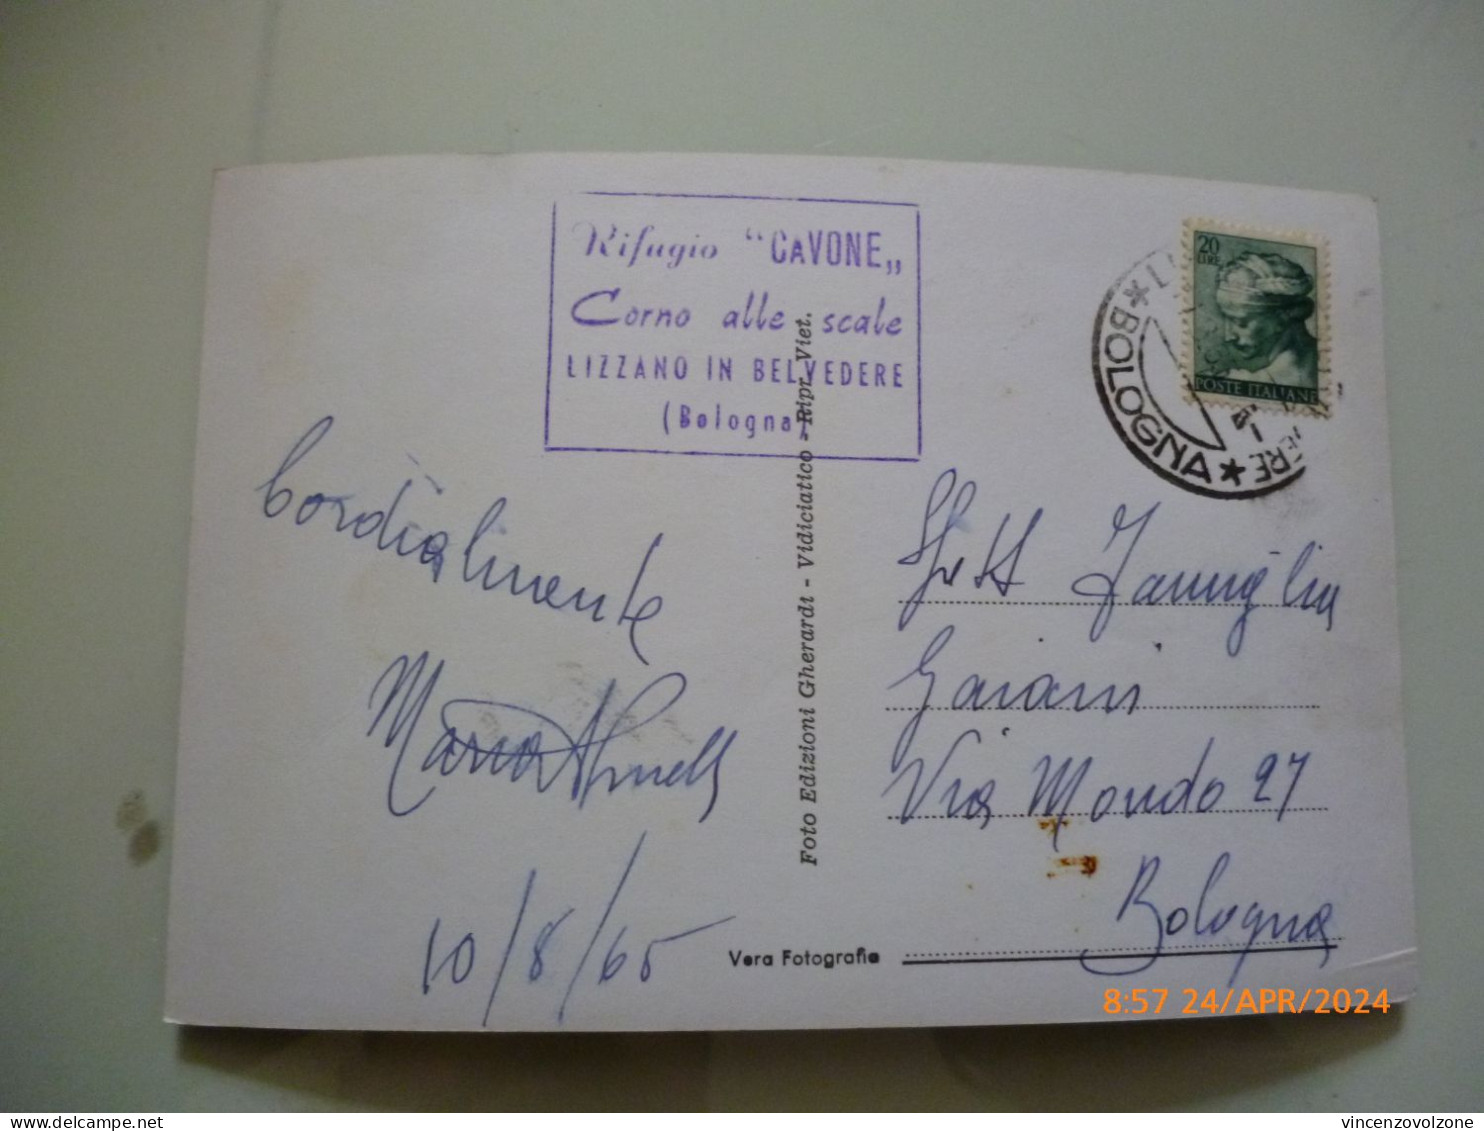 Rifugio "CAVONE"
Corno alle scale
LIZZANO IN BELVEDERE
(Bologna)
20
LIRE
POSTE ITALIANE
* BOLOGNA *
Cordialmente
Maria
10/8/65
Foto Edizioni Gherardi - Vidiciatico - Ripr. Viet.
Spett Famiglia
Gaiani
Via Mondo 27
Bologna
Vera Fotografia
8:57 24/APR/2024
delcampe.net
vincenzovolzone